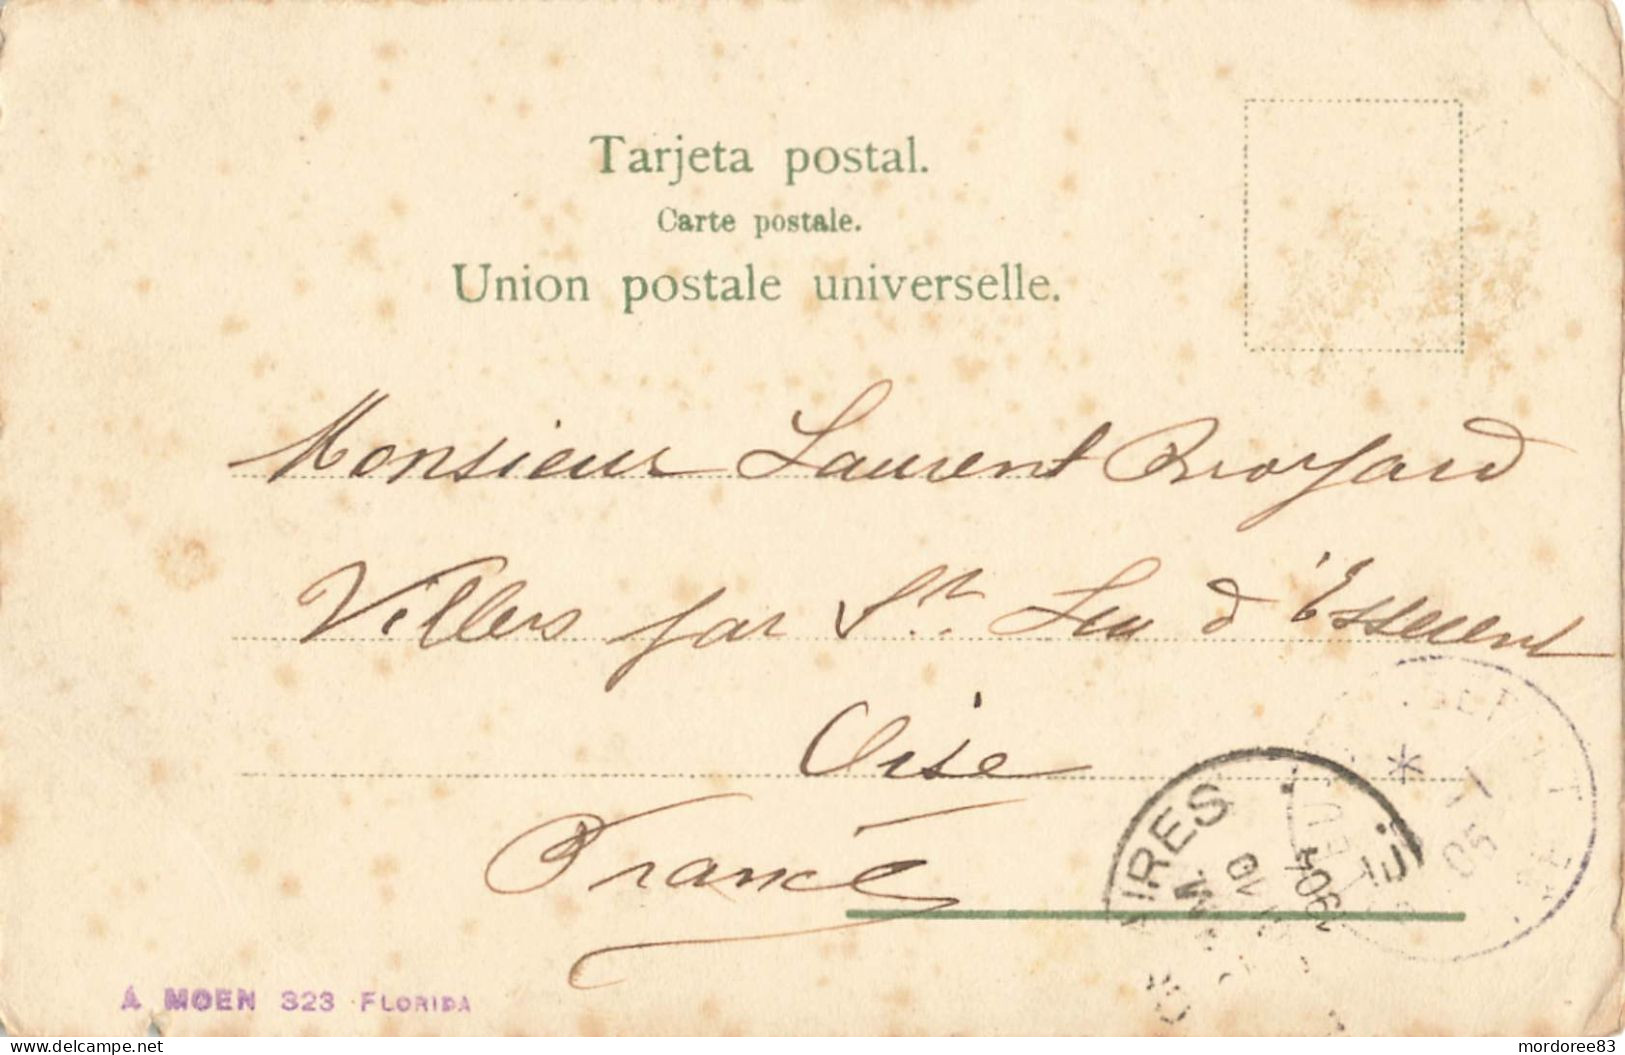 Tarjeta postal.
Carte postale.
Union postale universelle.
Monsieur Laurent Broyard
Villers par St. Leu d'Esserent
Oise
France
AIRES
1904
05
A MOEN 323 FLORIDA
delcampe.net
mordoree83